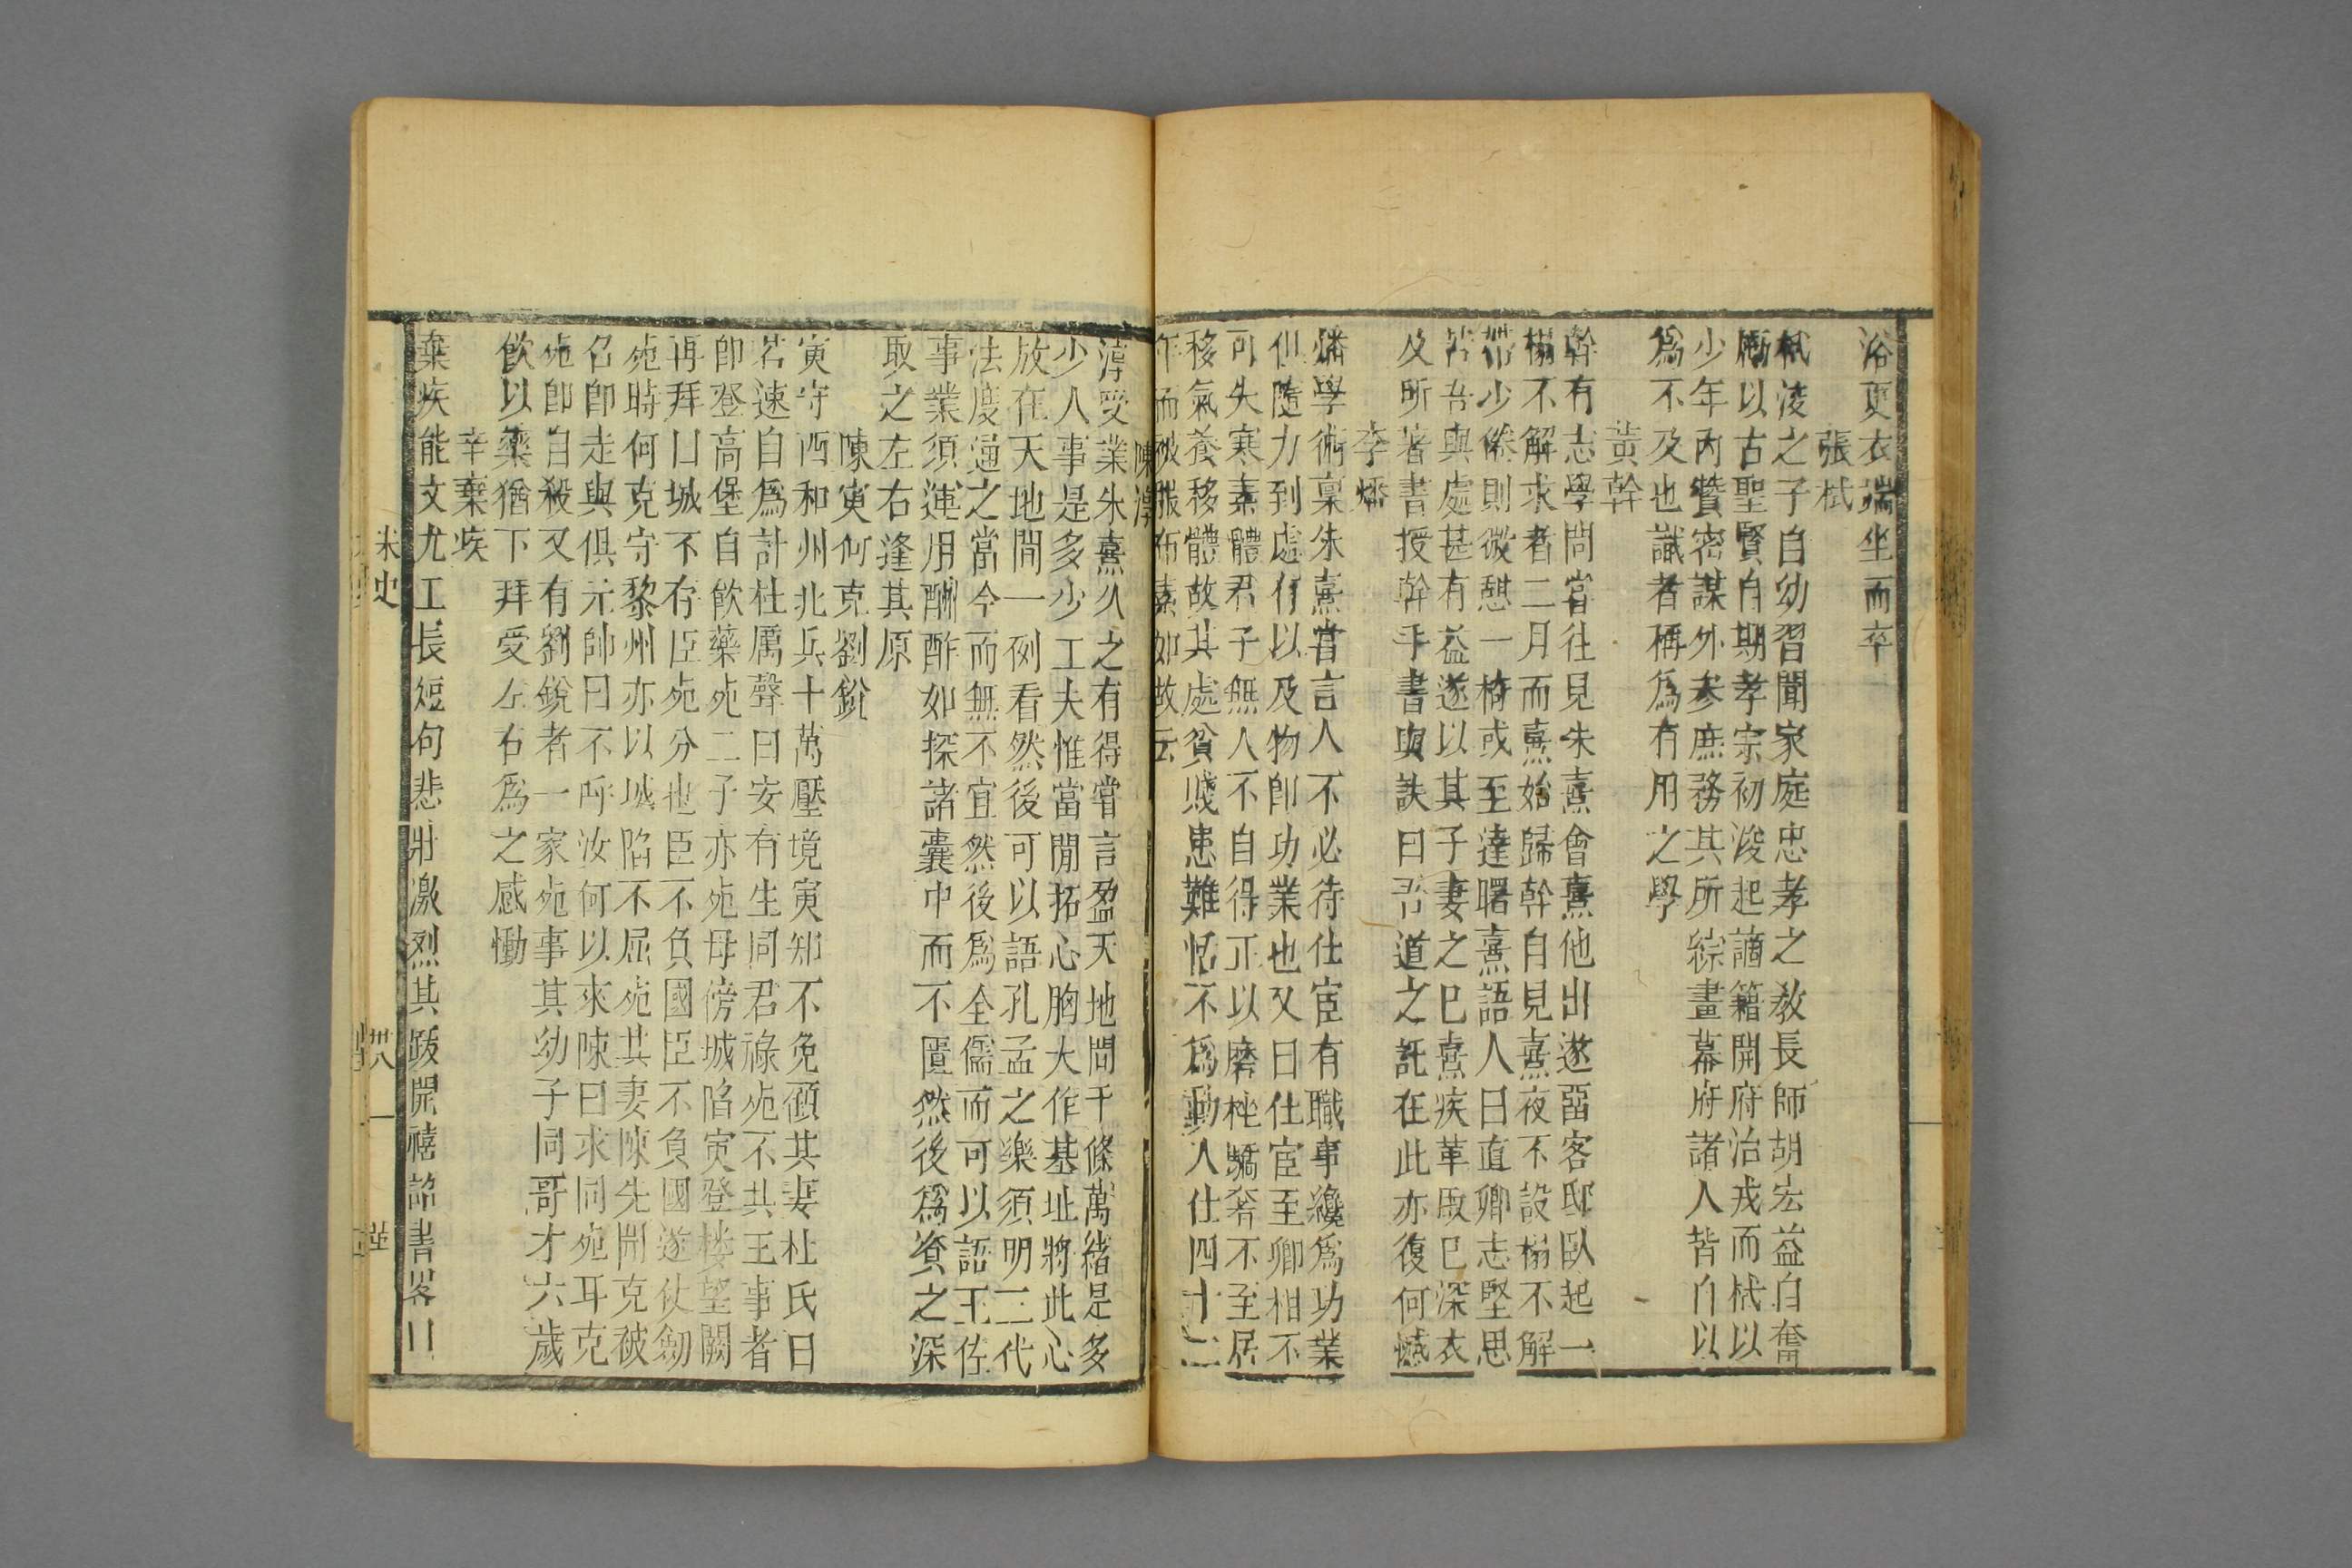 浴更衣端坐而卒
張栻
栻浚之子自幼習聞家庭忠孝之教長師胡宏益自奮
勵以古聖賢自期孝宗初浚起謫籍開府治戎而栻以
少年內贊密謀外參庶務其所綜畫幕府諸人皆自以
爲不及也識者稱爲有用之學
黃幹
幹有志學問嘗往見朱熹會熹他出遂畱客邸臥起一
榻不解求者二月而熹始歸幹自見熹夜不設榻不解
帶少倦則微憩一椅或至達曙熹語人曰直卿志堅思
苦吾與處甚有益遂以其子妻之巳熹疾革取巳深衣
及所著書授幹手書與訣曰吾道之託在此亦復何憾
李燔
燔學術稟朱熹嘗言人不必待仕宦有職事纔爲功業
但隨力到處有以及物卽功業也又曰仕宦至卿相不
可失寒素體君子無人不自得正以磨挫驕奢不至居
移氣養移體故其處貧賤患難恬不爲動入仕四十二
年而被服布素如故云
陳淳
淳受業朱熹久之有得嘗言盈天地間千條萬緒是多
少人事是多少工夫惟當開拓心胸大作基址將此心
放在天地間一例看然後可以語孔孟之樂須明三代
法度通之當今而無不宜然後爲全儒而可以語王佐
事業須運用酬酢如探諸囊中而不匱然後爲資之深
取之左右逢其原
陳寅何克劉銳
寅守西和州北兵十萬壓境寅知不免顧其妻杜氏曰
若速自爲計杜厲聲曰安有生同君祿死不共王事者
卽登高堡自飮藥死二子亦死母傍城陷寅登楼望闕
再拜曰城不存臣死分也臣不負國臣不負國遂仗劒
死時何克守黎州亦以城陷不屈死其妻陳先聞克被
名卽走與俱元帥曰不呼汝何以來陳曰求同死耳克
死卽自殺又有劉銳者一家死事其幼子同哥才六歲
飲以藥猶下拜受左右爲之感慟
辛棄疾
棄疾能文尤工長短句悲壯激烈其跋開禧詔書畧曰
宋史
卅八